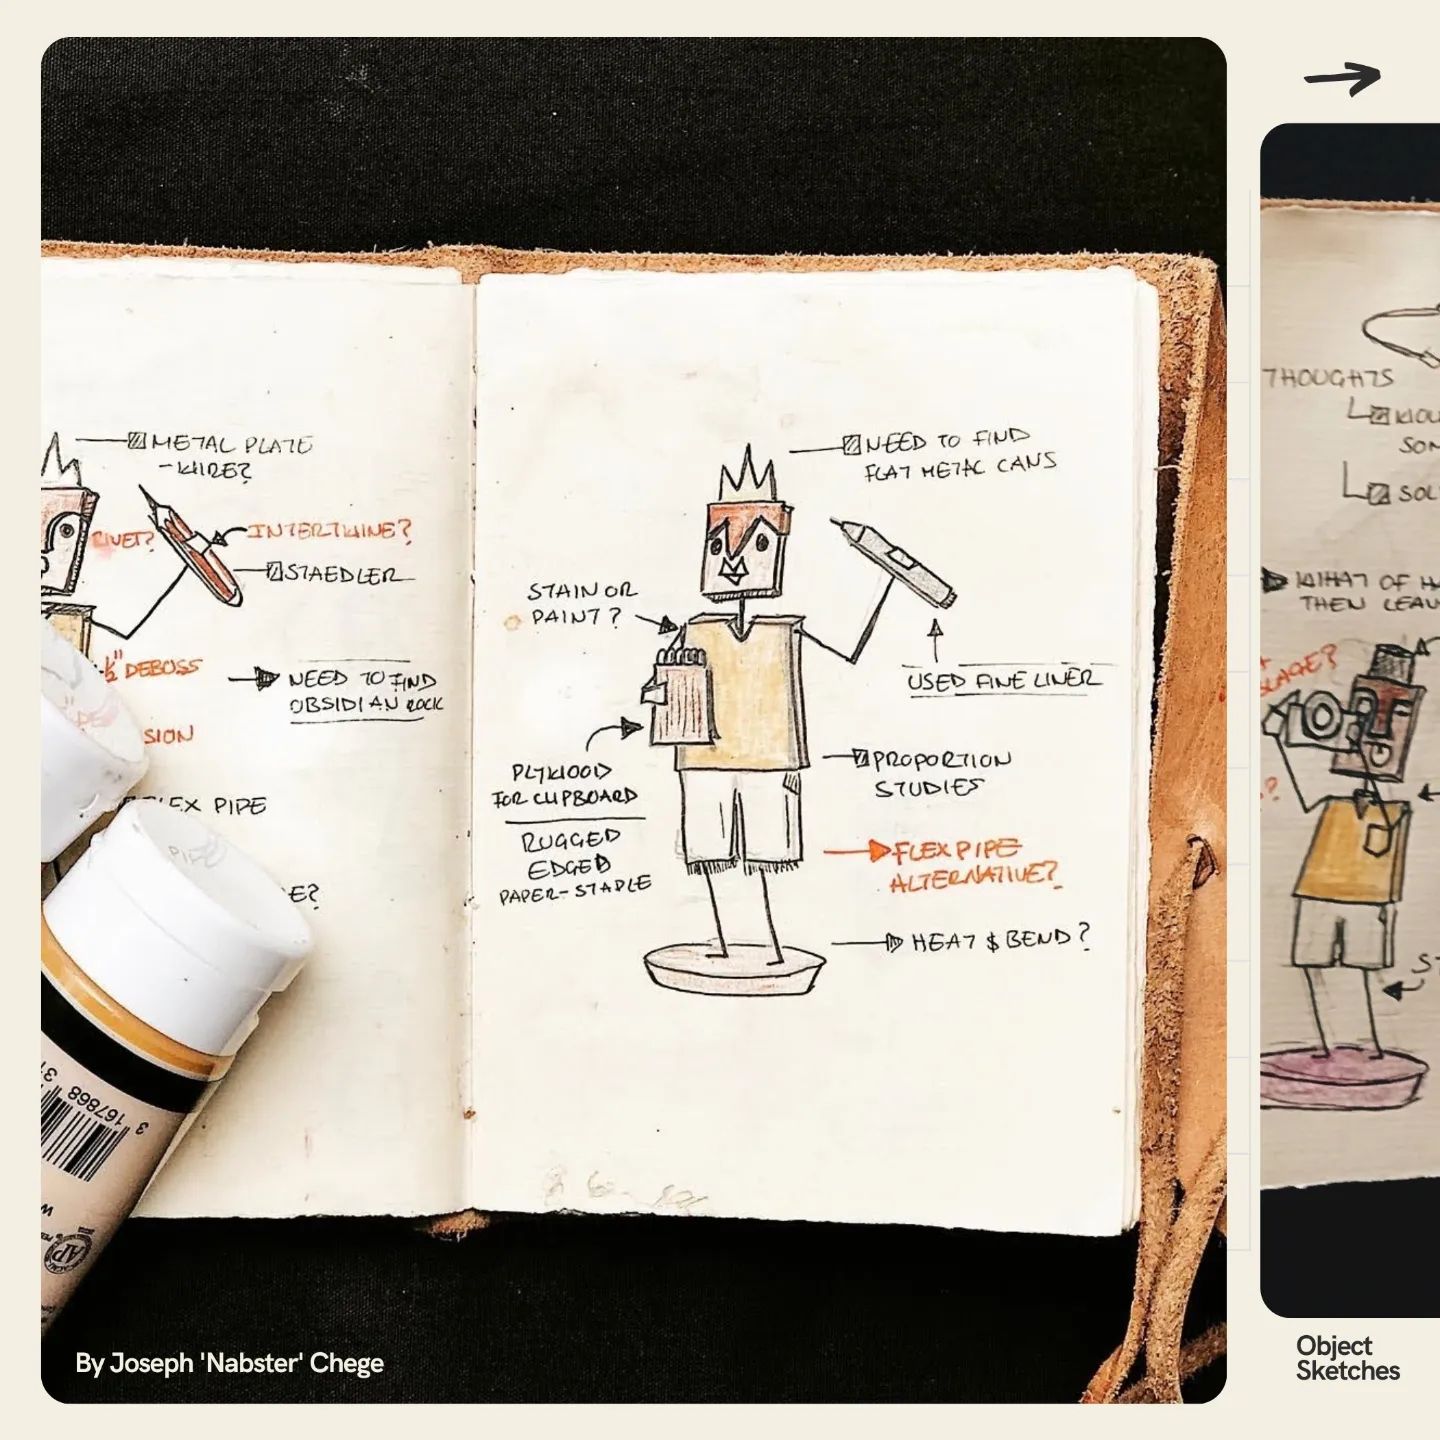 METAL PLATE
-WIRE?
RIVET?
INTERTWINE?
STAEDLER
½" DEBOSS
NEED TO FIND
OBSIDIAN ROCK
SION
FLEX PIPE
E?
NEED TO FIND
FLAT METAL CANS
STAIN OR
PAINT?
USED FINE LINER
PLYWOOD
FOR CLIPBOARD
RUGGED
EDGED
PAPER-STAPLE
PROPORTION
STUDIES
FLEX PIPE
ALTERNATIVE?
HEAT & BEND?
3 167868 31
AP
By Joseph 'Nabster' Chege
THOUGHTS
SOM
SOL
WHAT OF HA
THEN LEAV
?
ST
Object
Sketches